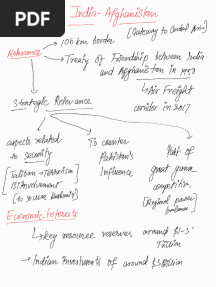 PDF
India-Afghanistan
→ 106 km border
[Gateway to Central Asia]
Relevance
→ Treaty of Friendship between India
and Afghanistan in 1950
↳ Air Freight
corridor in 2017
Strategic Relevance
aspects related
to security
[Taliban → Terrorism
ISI Involvement
(to secure Kashmir)]
To counter
Pakistan's
Influence
Part of
great game
competition
[Regional power
balance]
Economic Interests
↳ Key resource reserves around $1-3
Trillion
→ Indian Investments of around $3 Billion